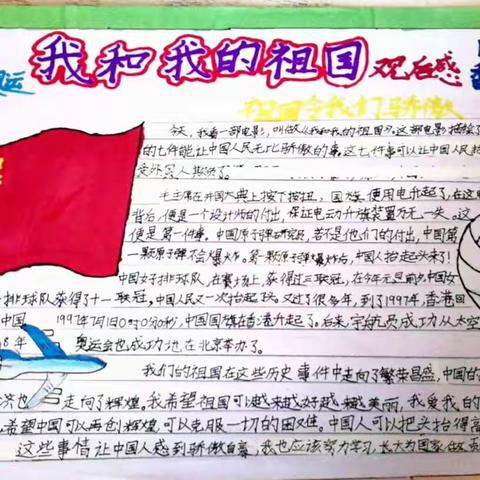 我和我的祖国观后感
运
祖国令我们骄傲
今天,我看一部电影,叫做《我和我的祖国》,这部电影描绘了
的七件能让中国人民无比骄傲的事,这七件事可以让中国人民
受外国人欺负了。
毛主席在开国大典上按下按扭,国旗便用电升起了,在这
背后,便是一个设计师的付出,保证电动升旗装置万无一失。这
便是第一件事。中国原子弹研究员,若不是他们的付出,中国第
一颗原子弹不会爆炸。第一颗原子弹爆炸后,中国人抬起头来了!
中国女子排球队,在赛场上,获得过三联冠,在今年元旦前夕,中国女
排球队荣获得十一联冠,中国人民又一次抬起了头。又过了很多年,到了1997年,香港回
中国 1997年7月1日0时0分0秒,中国国旗在香港升起了。后来,宇航员成功从太空
8年 奥运会也成功地在北京举办了。
我们的祖国在这些历史事件中走向了繁荣昌盛,中国的
济也 走向了辉煌。我希望祖国可以越来越好越来越美丽,我爱我的
希望中国可以再创辉煌,可以克服一切的困难。中国人可以把头抬得高
这些事情让中国人感到骄傲自豪,我也应该努力学习,长大为国家做贡